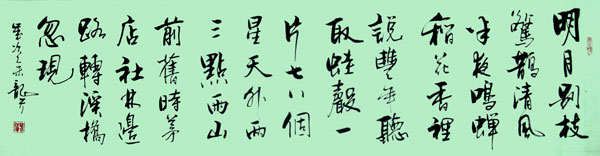 明月別枝
驚鵲清風
半夜鳴蟬
稻花香裡
說豐年聽
取蛙聲一
片七八個
星天外兩
三點雨山
前舊時茅
店社林邊
路轉溪橋
忽現